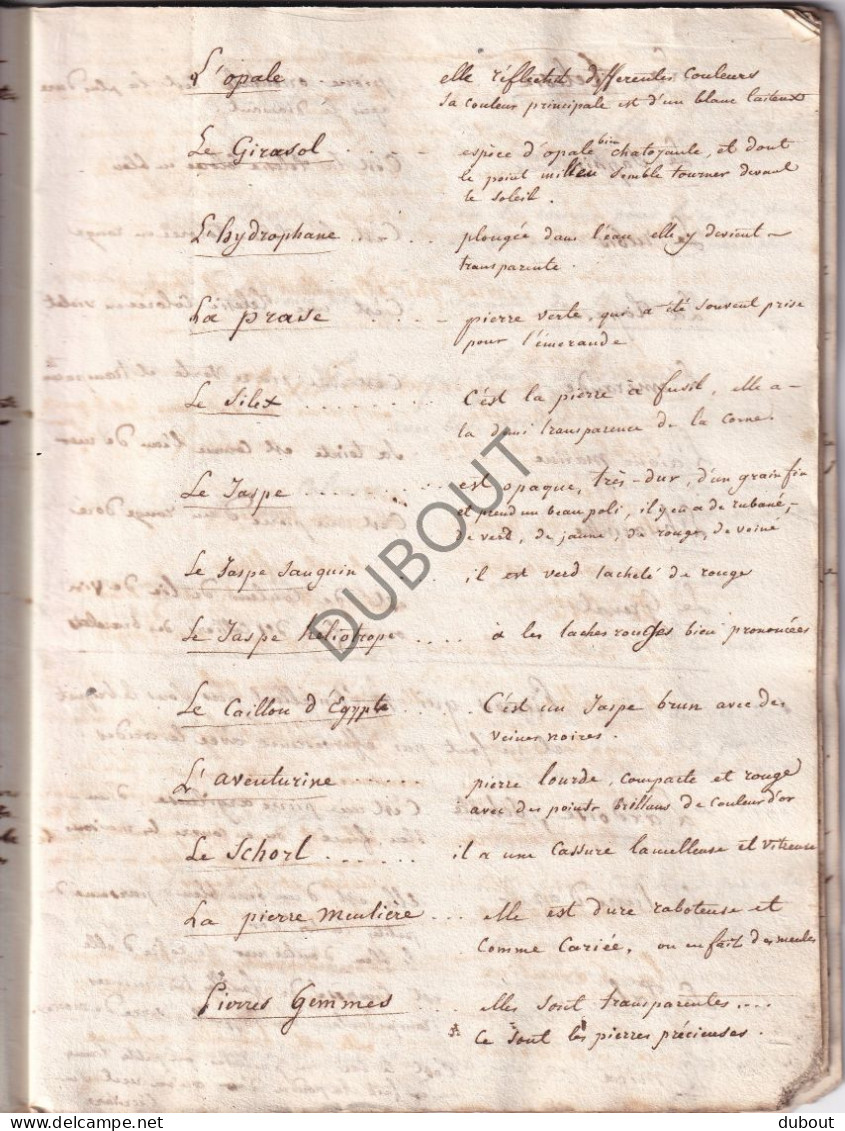 L'opale elle réflechit differentes couleurs
sa couleur principale est d'un blanc laiteux
Le Girasol . . . espèce d'opale bien chatoyante, et dont
le point milieu semble tourner devant
le soleil.
L'hydrophane . . . . plongée dans l'eau elle y devient
transparente.
La prase . . . . pierre verte, qui a été souvent prise
pour l'émeraude
Le Silex . . . . . . . . C'est la pierre à fusil, elle a
la demi transparence de la corne
Le Jaspe . . . . . . . . est opaque, très-dur, d'un grain fin
et prend un beau poli, il y en a de rubané,
de verd, de jaune, de rouge, de veiné
Le Jaspe Sanguin . . il est verd tacheté de rouge
Le Jaspe héliotrope . . . . a les taches rouges bien prononcées
Le Caillou d'Egypte . . . C'est un Jaspe brun avec des
veines noires.
L'aventurine . . . . . pierre lourde, compacte et rouge
avec des points brillans de couleur d'or
Le Schorl . . . . . . il a une cassure lamelleuse et vitreuse
La pierre Meulière . . . elle est dure raboteuse et
comme cariée, on en fait des meules
Pierres Gemmes . . . elles sont transparentes....
Ce sont les pierres précieuses.
DUBOUT
delcampe.net
dubout